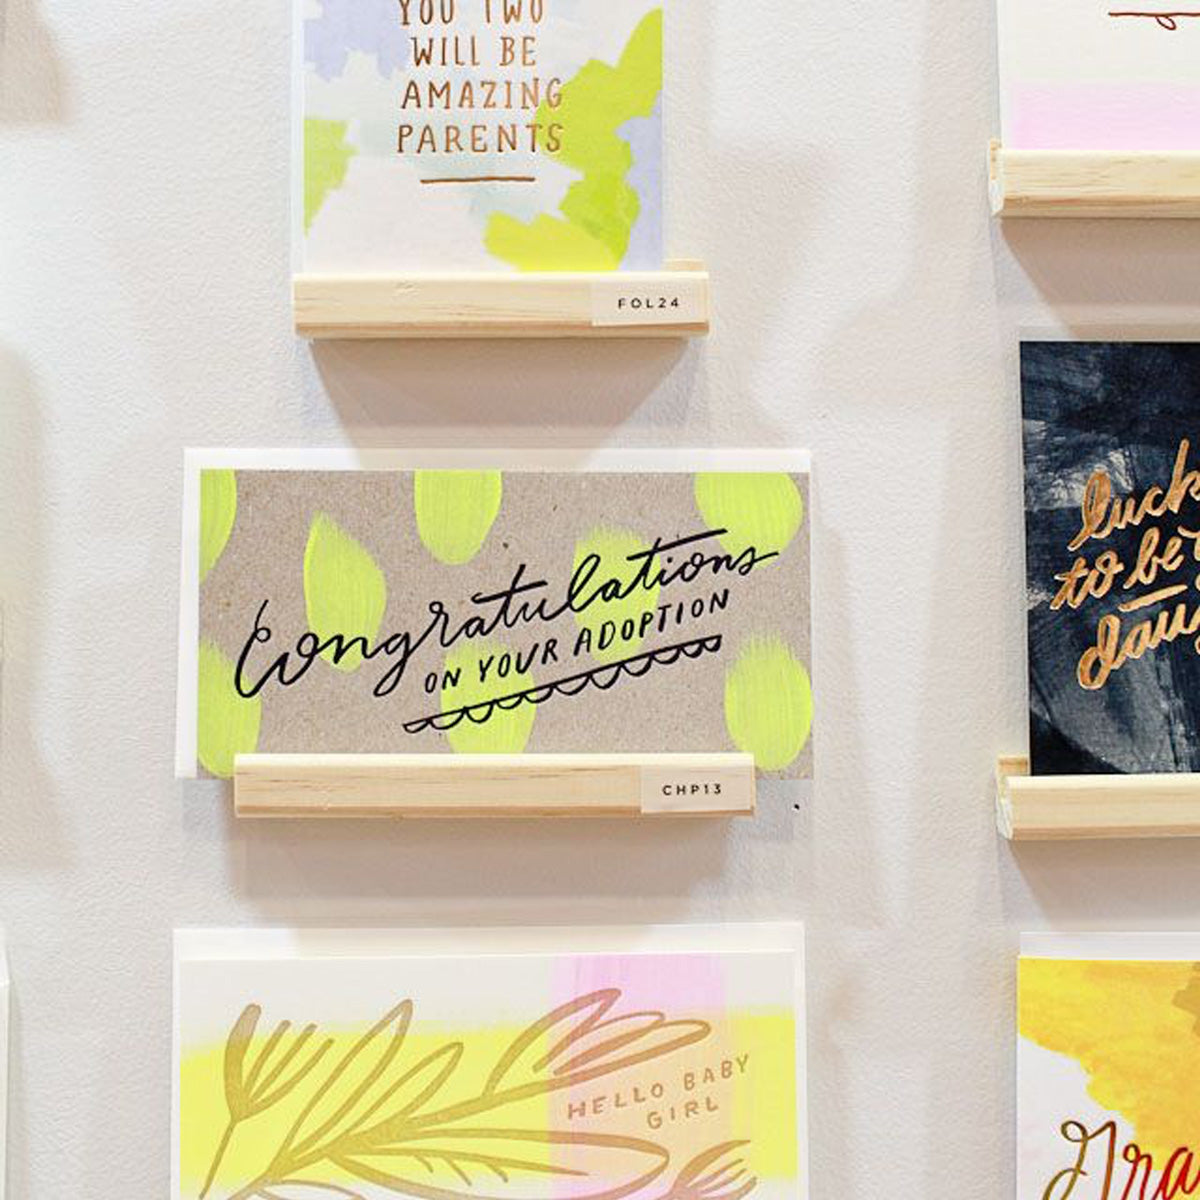 YOU TWO
WILL BE
AMAZING
PARENTS
FOL24
Congratulations
ON YOUR ADOPTION
CHP13
HELLO BABY
GIRL
luck
to be
dau
Gra